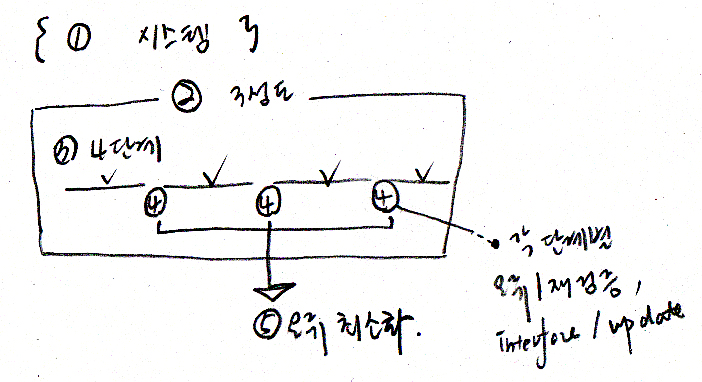 { ① 시스템 }
② 구성도
③ 4단계
④ ④ ④
각 단계별
오류/재검증,
Interface/update
⑤ 오류 최소화.